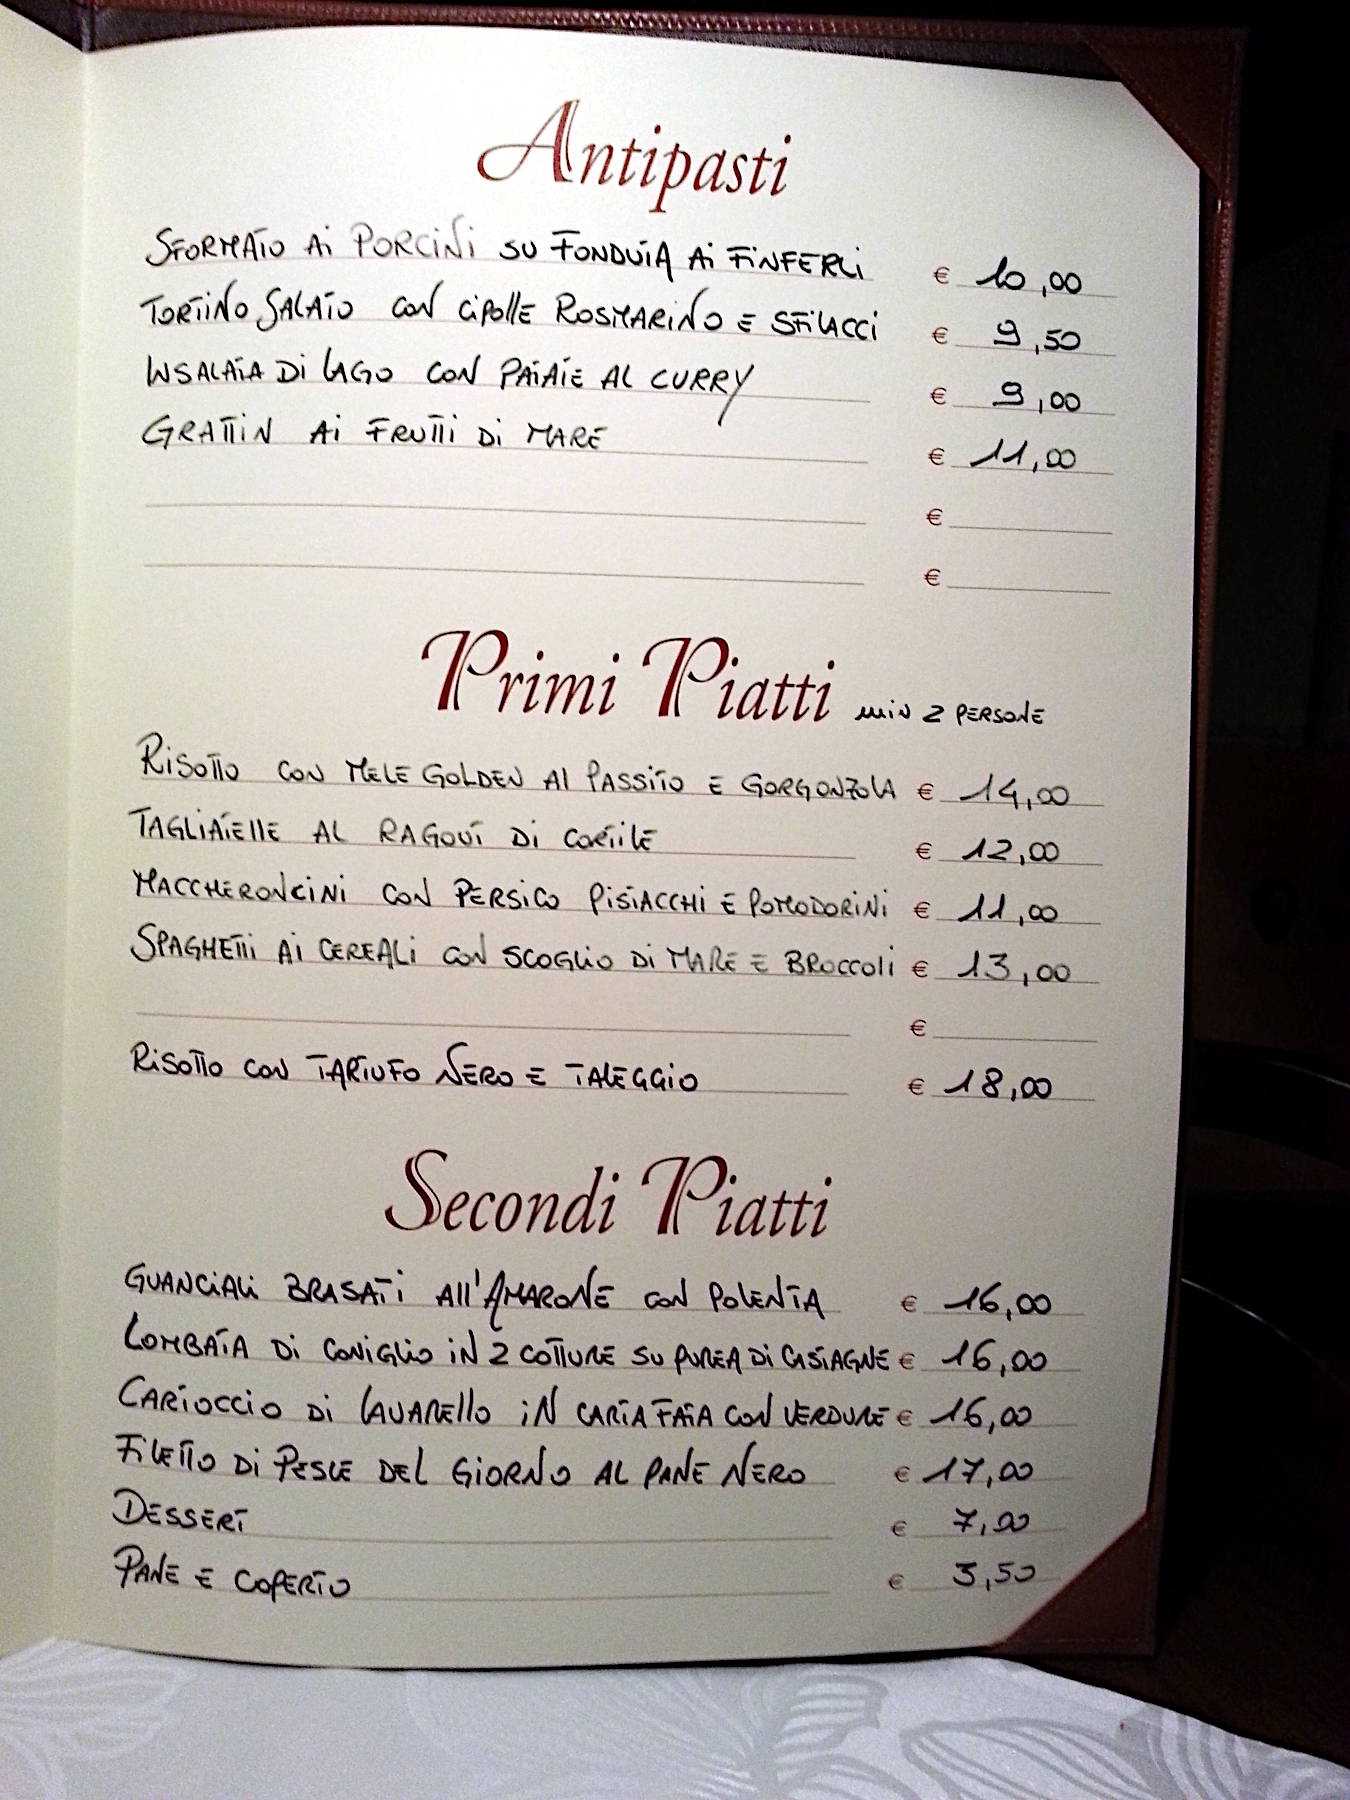 Antipasti
SFORMATO Ai PORCINI SU FONDUTA Ai FINFERLI € 10,00
TORTINO SALATO CON CIPOLLE ROSMARINO E SFILACCI € 9,50
INSALATA DI LAGO CON PATATE AL CURRY € 9,00
GRATTIN Ai FRUTTI DI MARE € 11,00
€
€
Primi Piatti min 2 PERSONE
RISOTTO CON MELE GOLDEN AL PASSITO E GORGONZOLA € 14,00
TAGLIATELLE AL RAGOUT DI CORTILE € 12,00
MACCHERONCINI CON PERSICO PISTACCHI E POMODORINI € 11,00
SPAGHETTI AI CEREALI CON SCOGLIO DI MARE E BROCCOLI € 13,00
€
RISOTTO CON TARTUFO NERO E TALEGGIO € 18,00
Secondi Piatti
GUANCIALI BRASATI ALL'AMARONE CON POLENTA € 16,00
LOMBATA DI CONIGLIO IN 2 COTTURE SU PUREA DI CASTAGNE € 16,00
CARTOCCIO DI LAVARELLO IN CARTA FATA CON VERDURE € 16,00
FILETTO DI PESCE DEL GIORNO AL PANE NERO € 17,00
DESSERT € 7,00
PANE E COPERTO € 3,50